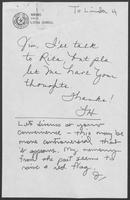 To Linda H
Jim, I'll talk
to Rita but pls
let me have your
thoughts
Thanks!
Let's discuss at your
convenience - this may be
more controversial than
it appears. My memory
from the past seems to
raise a red flag.